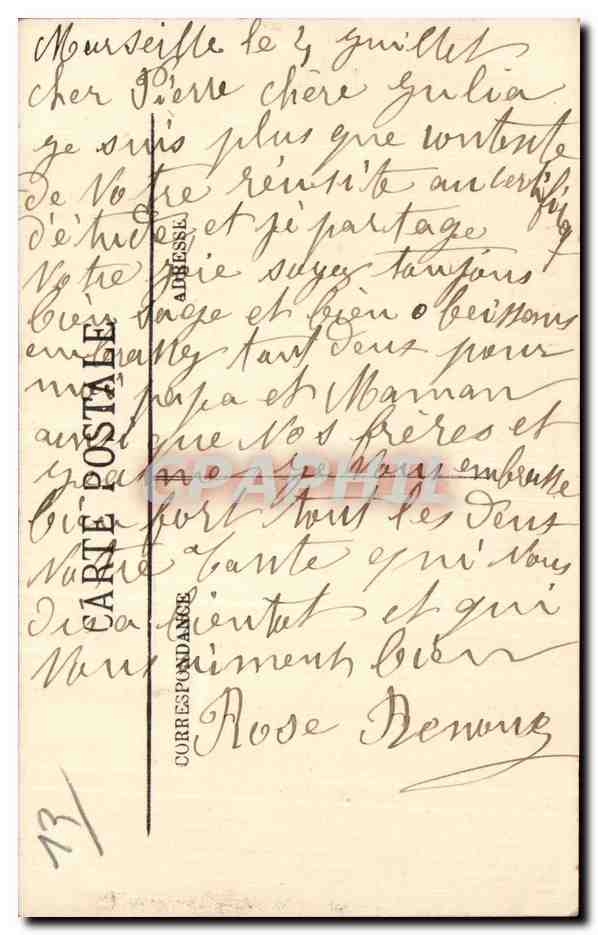 Marseille le 4 Juillet
cher Pierre chère Julia
je suis plus que contente
de Votre réusite au certifiga
d'étude et je partage
Votre joie soyez toujours
bien sage et bien obeissans
embrassez tout deux pour
moi papa et Maman
ainsi que Vos frères et
je Vous embrasse
bien fort tous les deux
Votre Tante qui Vous
dis a bientot et qui
Vous aiment bien
Rose
13
CARTE POSTALE
ADRESSE
CORRESPONDANCE
CPAPHIL